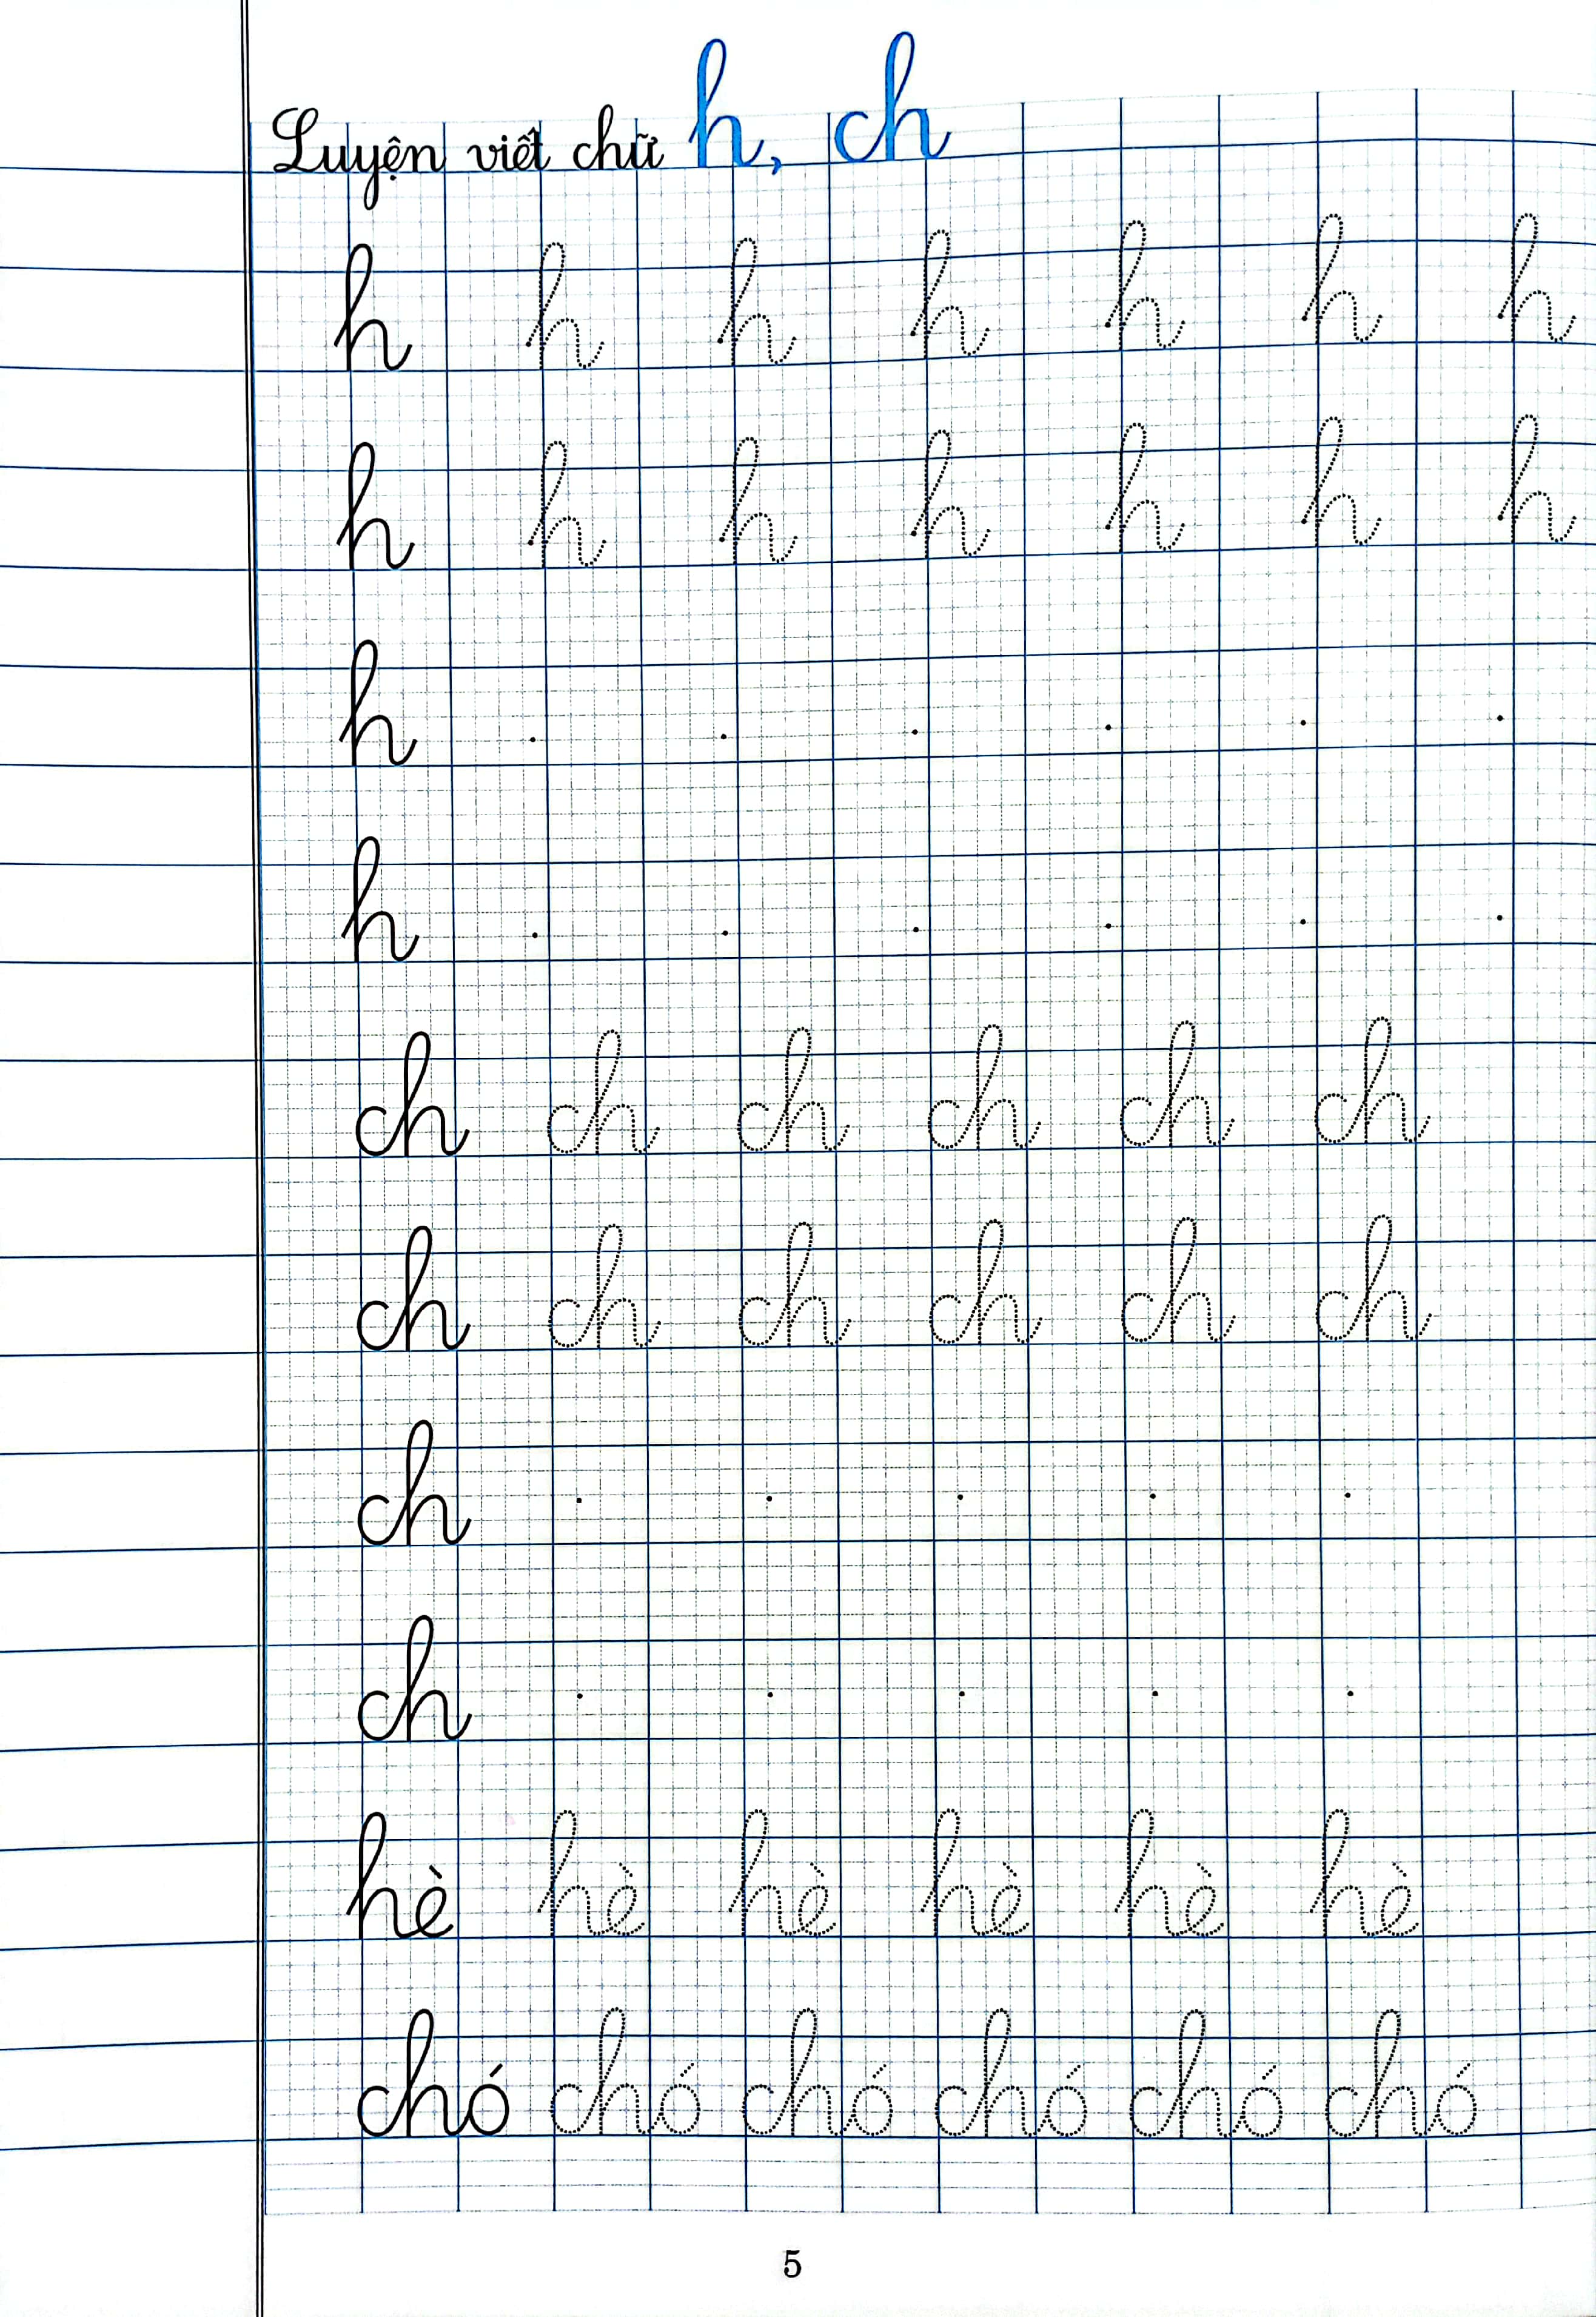 Luyện viết chữ h, ch
h h h h h h h
h h h h h h h
h . . . . . .
h . . . . . .
ch ch ch ch ch ch
ch ch ch ch ch ch
ch . . . . .
ch . . . . .
hè hè hè hè hè hè
chó chó chó chó chó chó
5